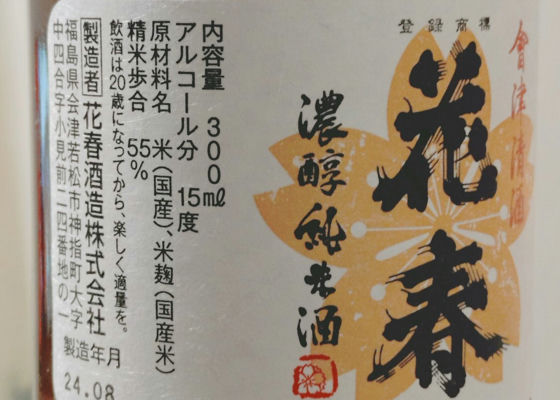 會津清酒
登録商標
花春
濃醇純米酒
内容量 300ml
アルコール分 15度
原材料名 米(国産)、米麹(国産米)
精米歩合 55%
飲酒は20歳になってから、楽しく適量を。
製造者 花春酒造株式会社
福島県会津若松市神指町大字
中四合字小見前二四番地の一
製造年月
24.08